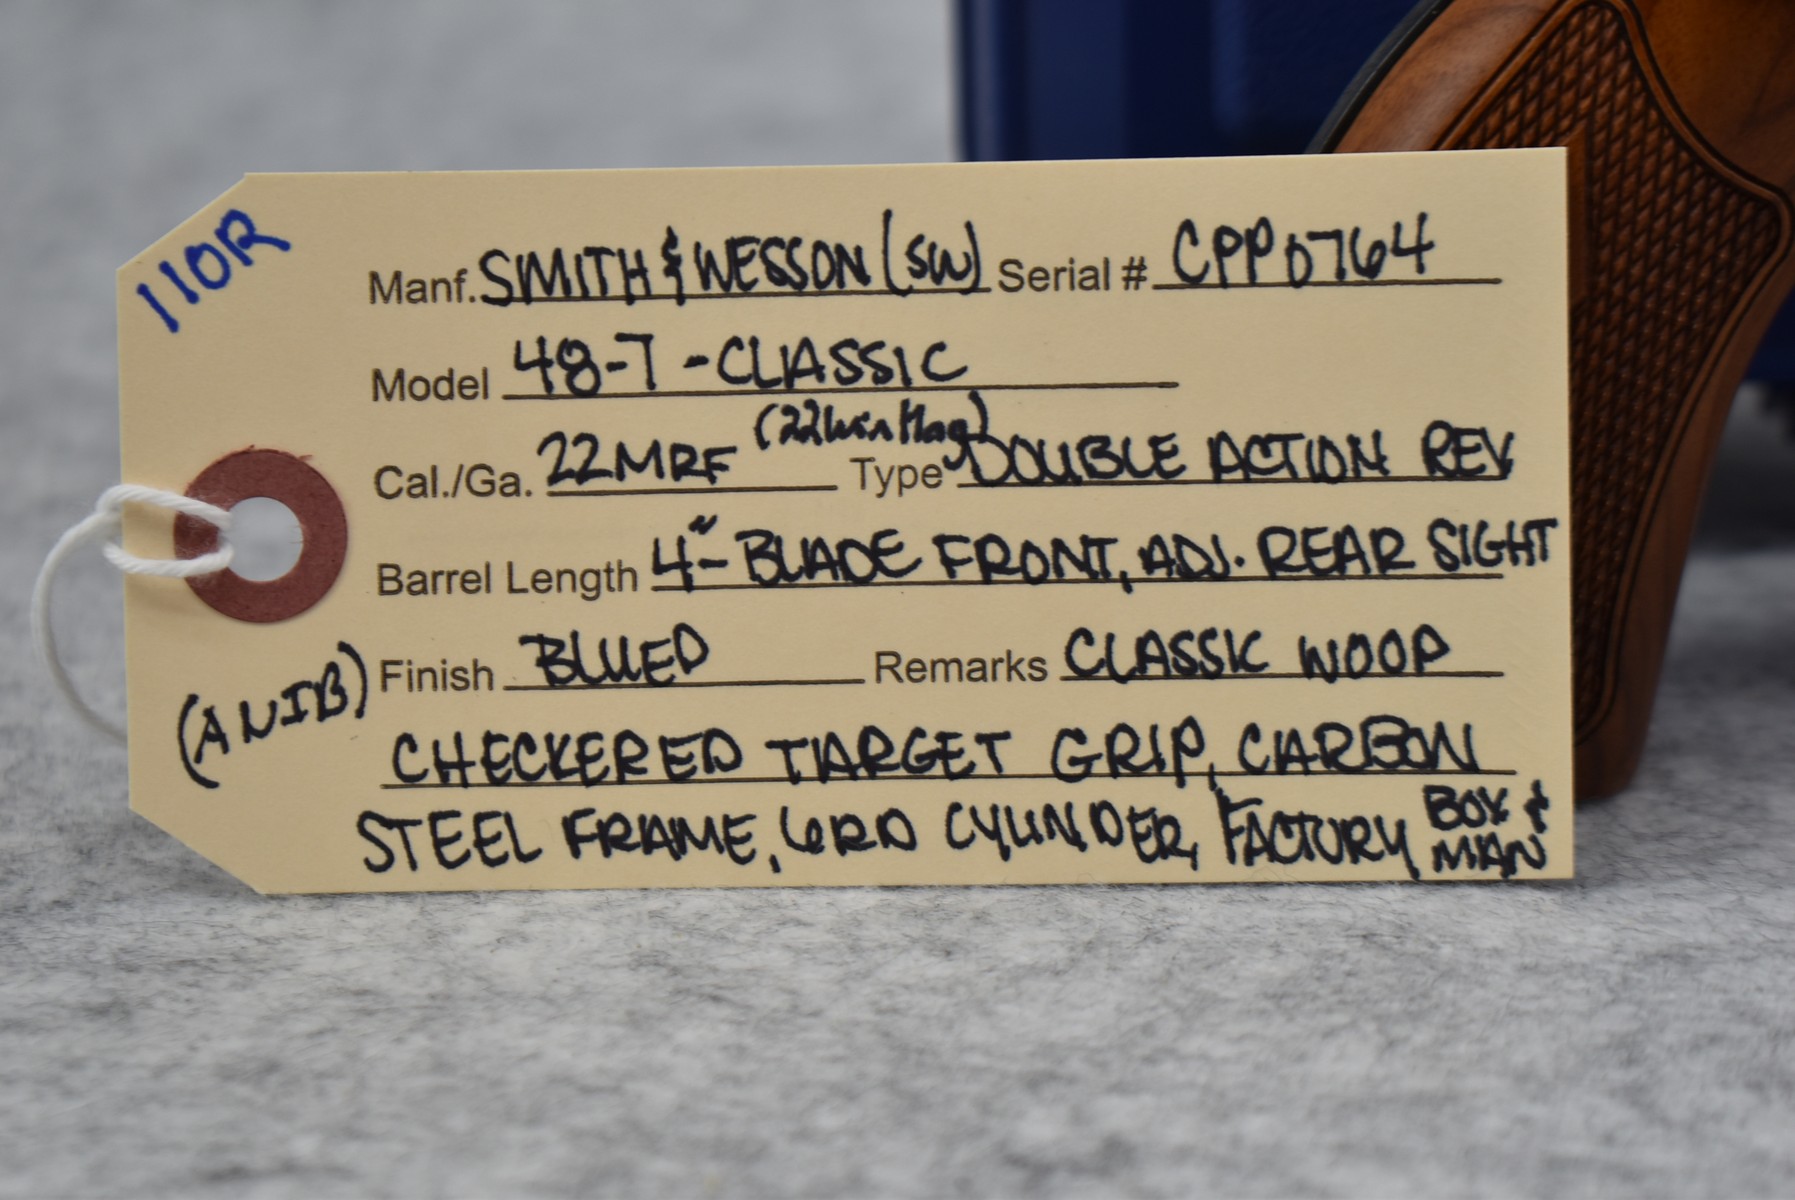 110R
Manf. SMITH & WESSON (SW) Serial # CPP0764
Model 48-7 -CLASSIC
Cal./Ga. 22MRF (22 Win Mag) Type DOUBLE ACTION REV
Barrel Length 4"- BLADE FRONT, ADJ. REAR SIGHT
(ANIB) Finish BLUED Remarks CLASSIC WOOD
CHECKERED TARGET GRIP, CARBON
STEEL FRAME, 6RD CYLINDER, FACTORY BOX & MAN